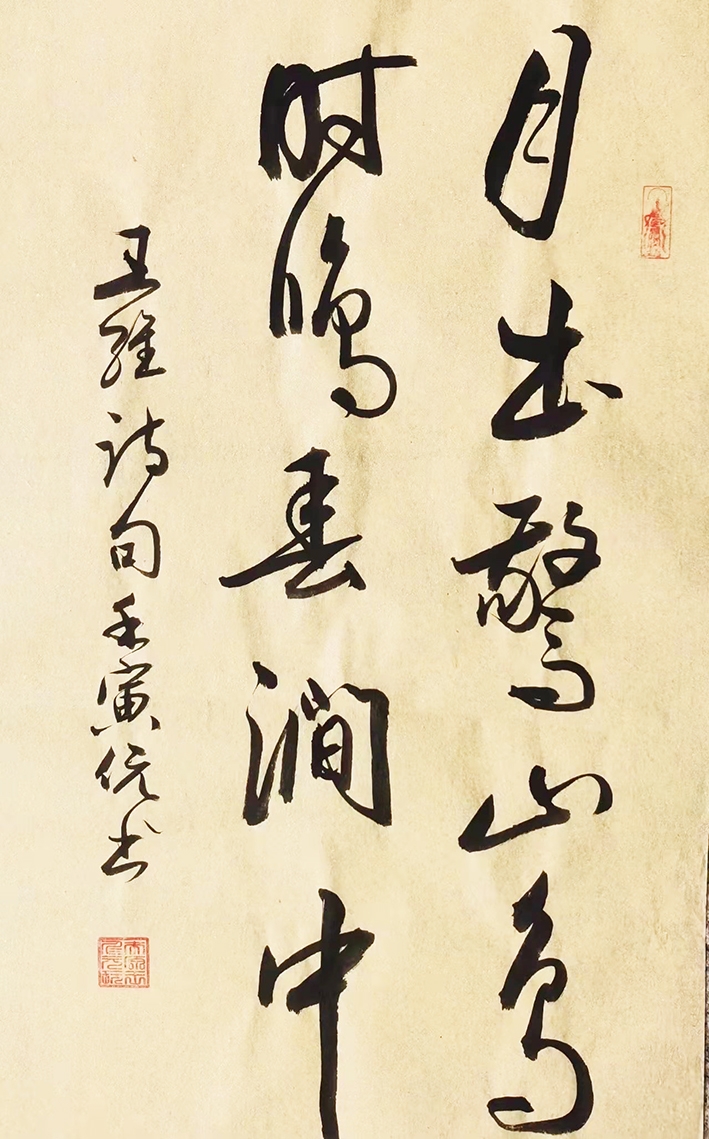 月出惊山鸟
时鸣春涧中
王维诗句壬寅信书